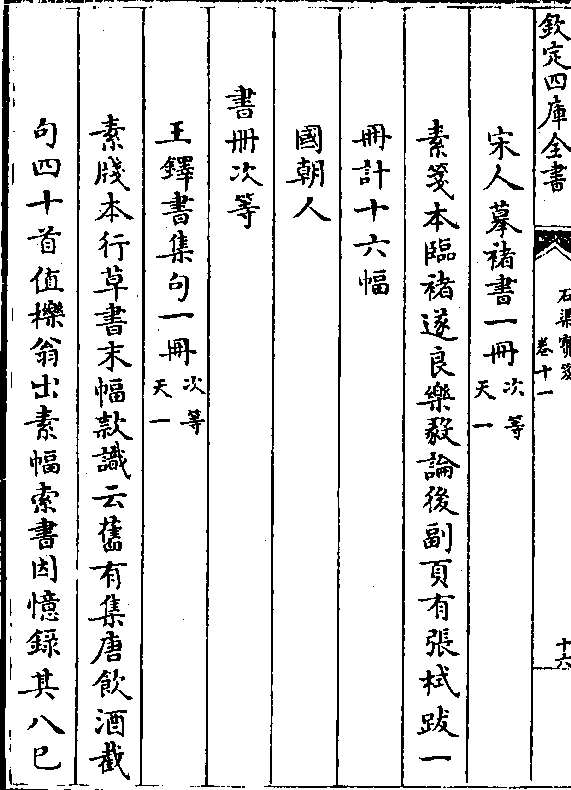 欽定四庫全書
石渠寶笈
卷十一
十六
宋人摹褚書一冊次等
天一
素箋本臨褚遂良樂毅論後副頁有張栻跋一
冊計十六幅
國朝人
書冊次等
王鐸書集句一冊次等
天一
素牋本行草書末幅款識云舊有集唐飲酒截
句四十首值櫟翁出素幅索書因憶錄其八已